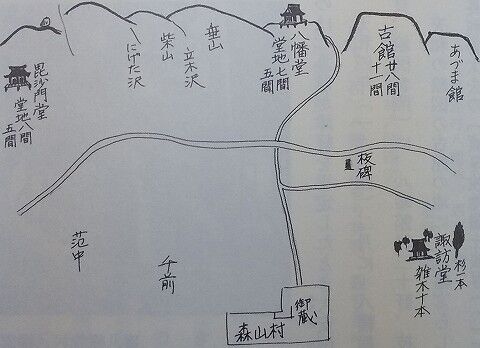 あづま館
古館 廿八間
十一間
八幡堂
堂地七間
五間
垂山
立木沢
柴山
にげた沢
毘沙門堂
堂地八間
五間
板碑
諏訪堂
杉一本
雑木十本
范中
千前
御蔵
森山村